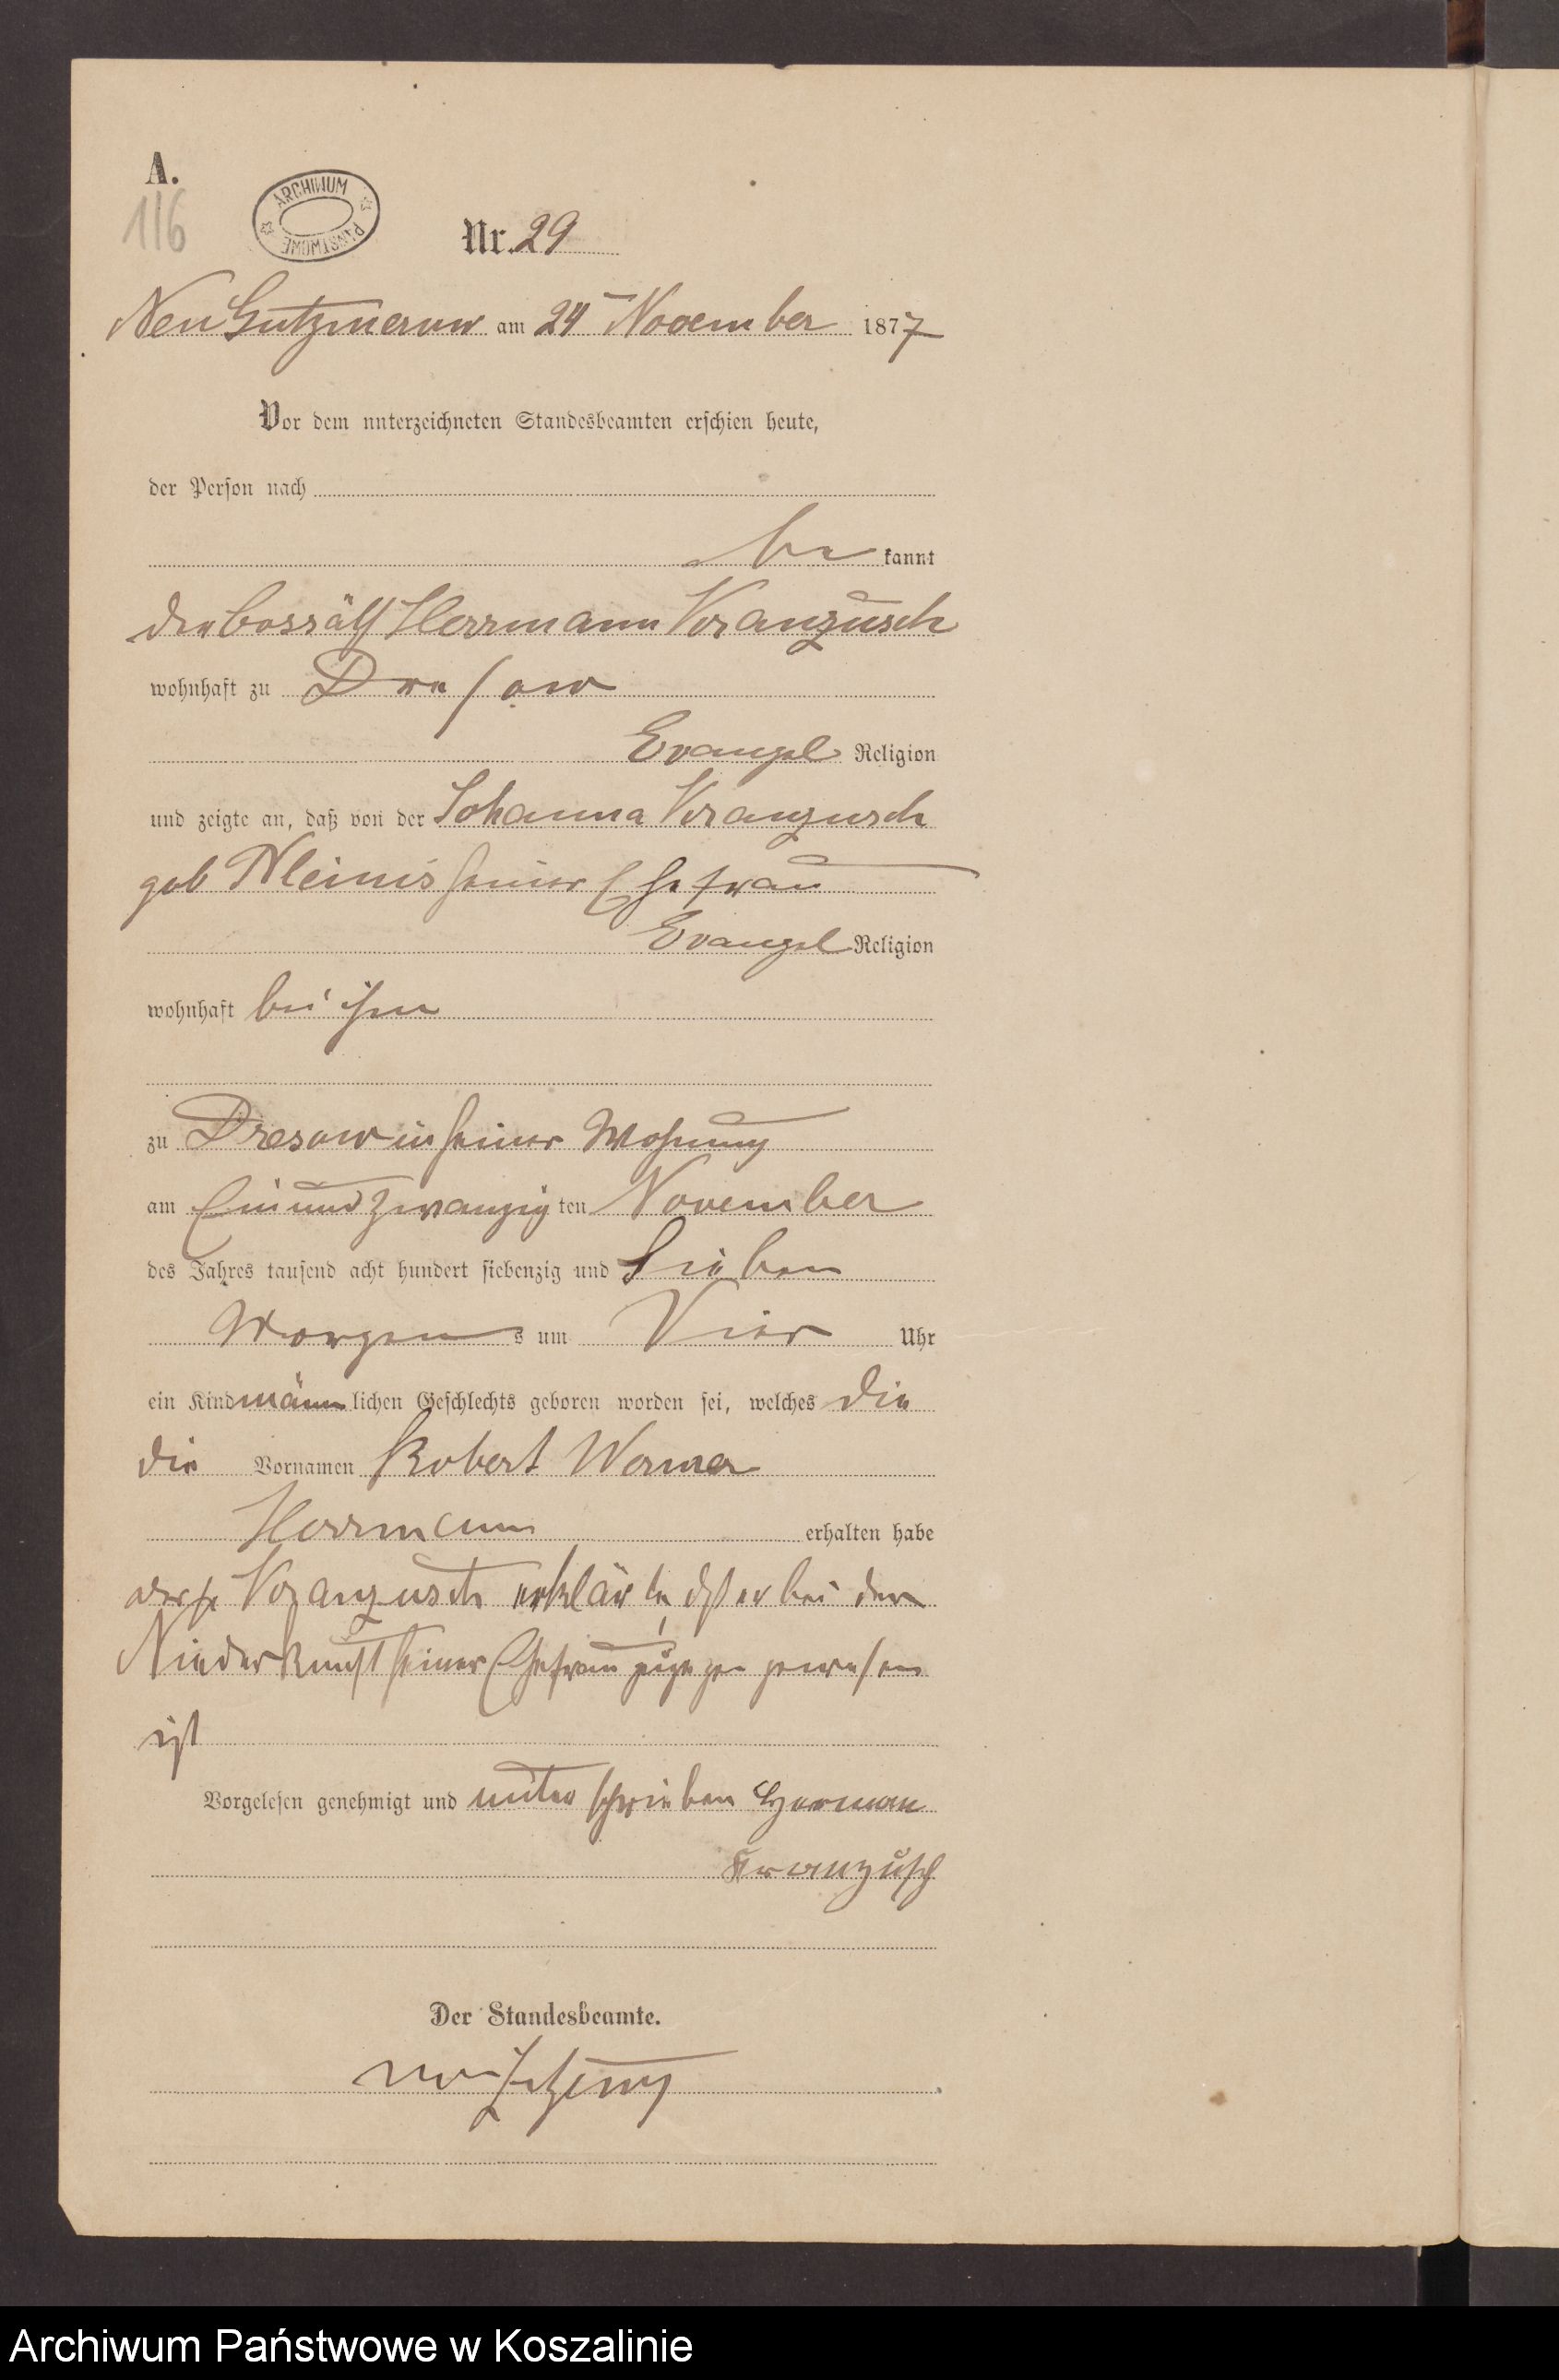 A.
116
ARCHIWUM PAŃSTWOWE
Nr. 29
Neu Gutzmerow am 24 November 1877
Vor dem unterzeichneten Standesbeamten erschien heute,
der Person nach
be kannt
Herrmann Kranzusch
wohnhaft zu Dresow
Evangel Religion
und zeigte an, daß von der Johanna Kranzusch
geb seiner Ehefrau
Evangel Religion
wohnhaft bei ihm
zu Dresow in seiner Wohnung
am Ein und zwanzig ten November
des Jahres tausend acht hundert siebenzig und Sieben
Morgen s um Vier Uhr
ein Kind männ lichen Geschlechts geboren worden sei, welches die
die Vornamen Robert Werner
Herrmann erhalten habe
Kranzusch erklärte, dß er bei der
Niederkunft seiner Ehefrau zugegen gewesen
ist
Vorgelesen genehmigt und unterschrieben Herman
Kranzusch
Der Standesbeamte.
Archiwum Państwowe w Koszalinie